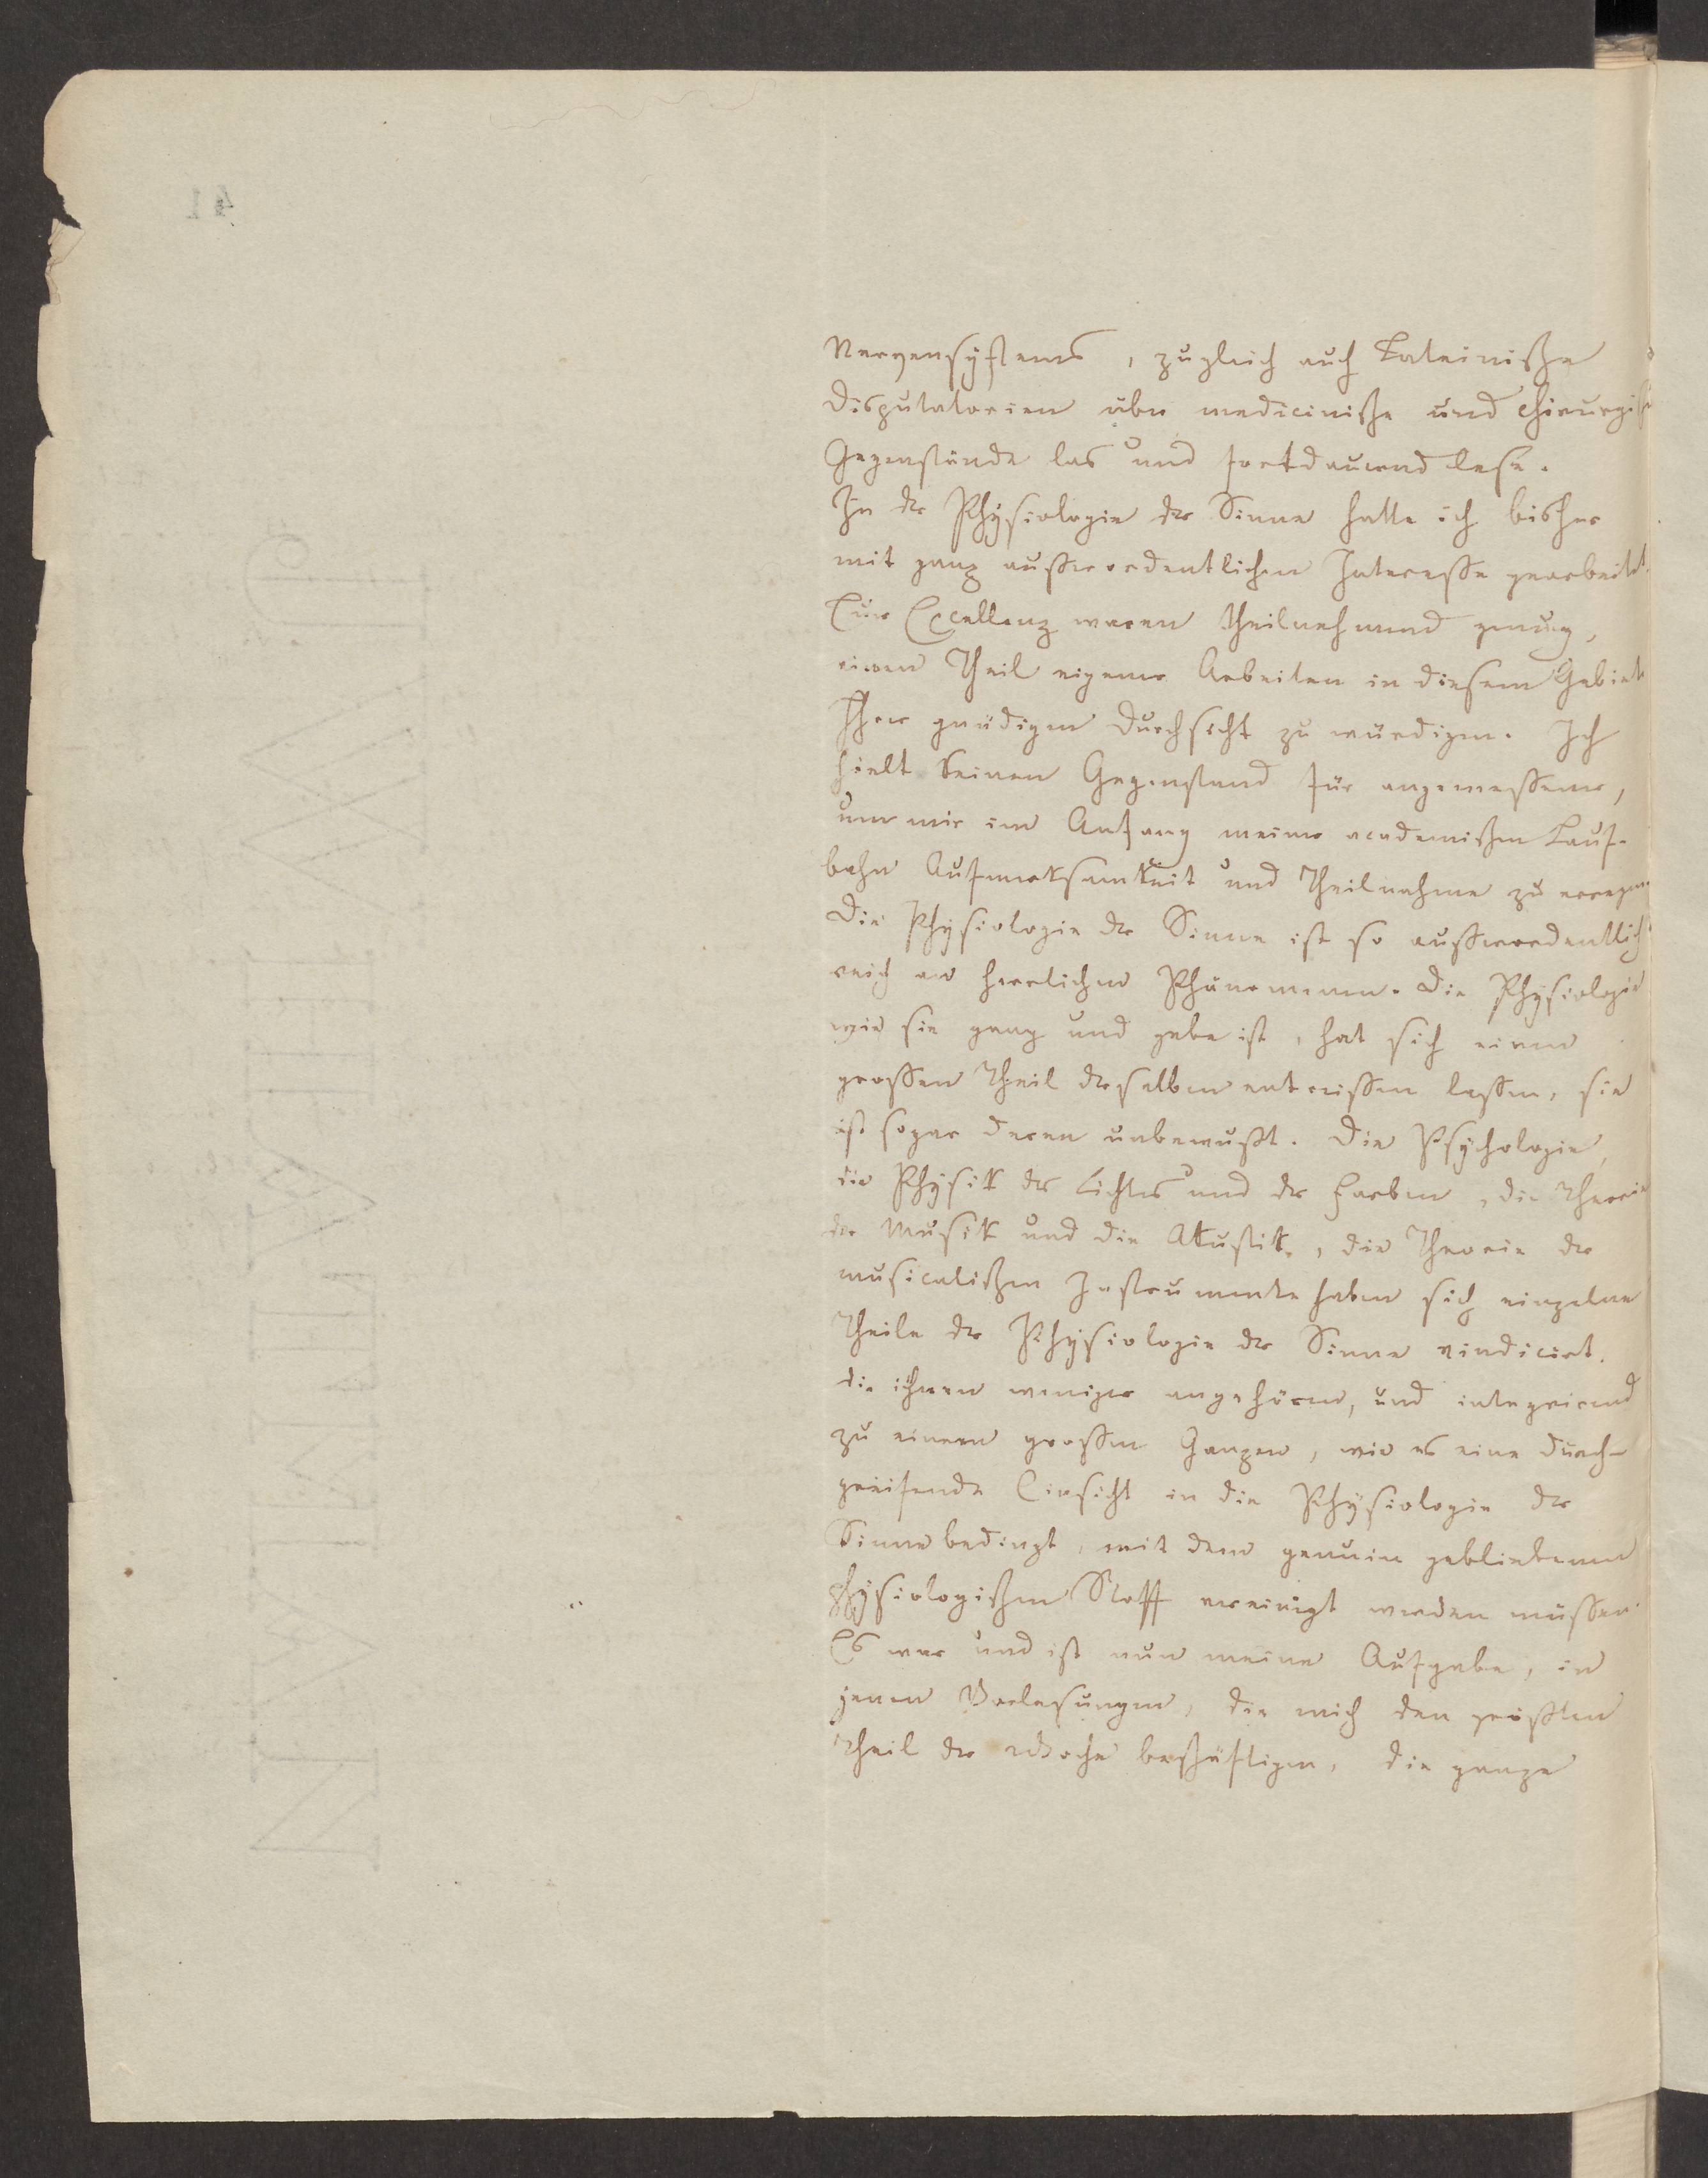 Nervensystems, zugleich auch Lateinische
Disputatorien über medicinische und chirurgische
Gegenstände las und fortdauernd lese.
In der Physiologie der Sinne hatte ich bisher
mit ganz ausserordentlichen Interesse gearbeitet.
Eur Excellenz waren theilnehmend genug,
einen Theil eigener Arbeiten in diesem Gebiete
Ihrer gnädigen Durchsicht zu würdigen. Ich
hielt keinen Gegenstand für angemessener,
um mir im Anfang meiner academischen Lauf-
bahn Aufmerksamkeit und Theilnahme zu erregen
Die Physiologie der Sinne ist so ausserordentlich
reich an herrlichen Phänomenen. Die Physiologie
wie sie gang und gebe ist, hat sich einen
grossen Theil derselben entreissen lassen, sie
ist sogar deren unbewusst. Die Psychologie,
die Physik des Lichtes und der Farben, die Theorie
der Musik und die Akustik, die Theorie der
musicalischen Instrumente haben sich einzelne
Theile der Physiologie der Sinne vindicirt,
die ihnen weniger angehören, und integrirend
zu einem grossen Ganzen, wie es eine durch-
greifende Einsicht in die Physiologie der
Sinne bedingt, mit dem genuin gebliebenen
physiologischen Stoff vereinigt werden müssen.
Es war und ist nun meine Aufgabe, in
jenen Vorlesungen, die mich den grössten
Theil der Woche beschäftigen, die ganze